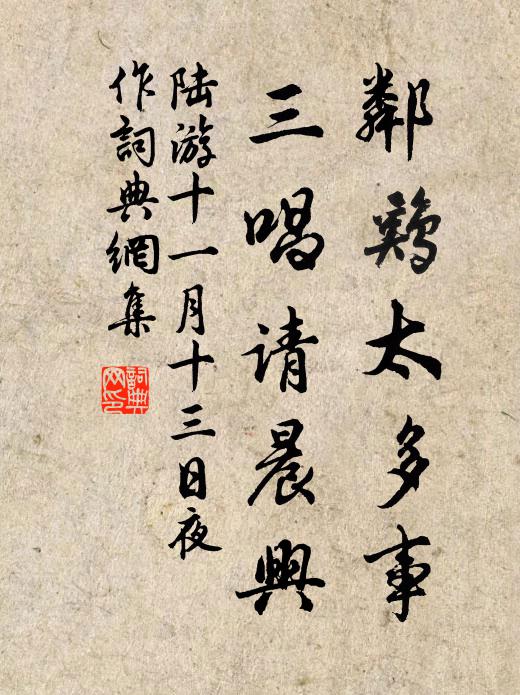 鄰鷄太多事
三唱请晨興
陆游十一月十三日夜
作詞典網集
詞典网印